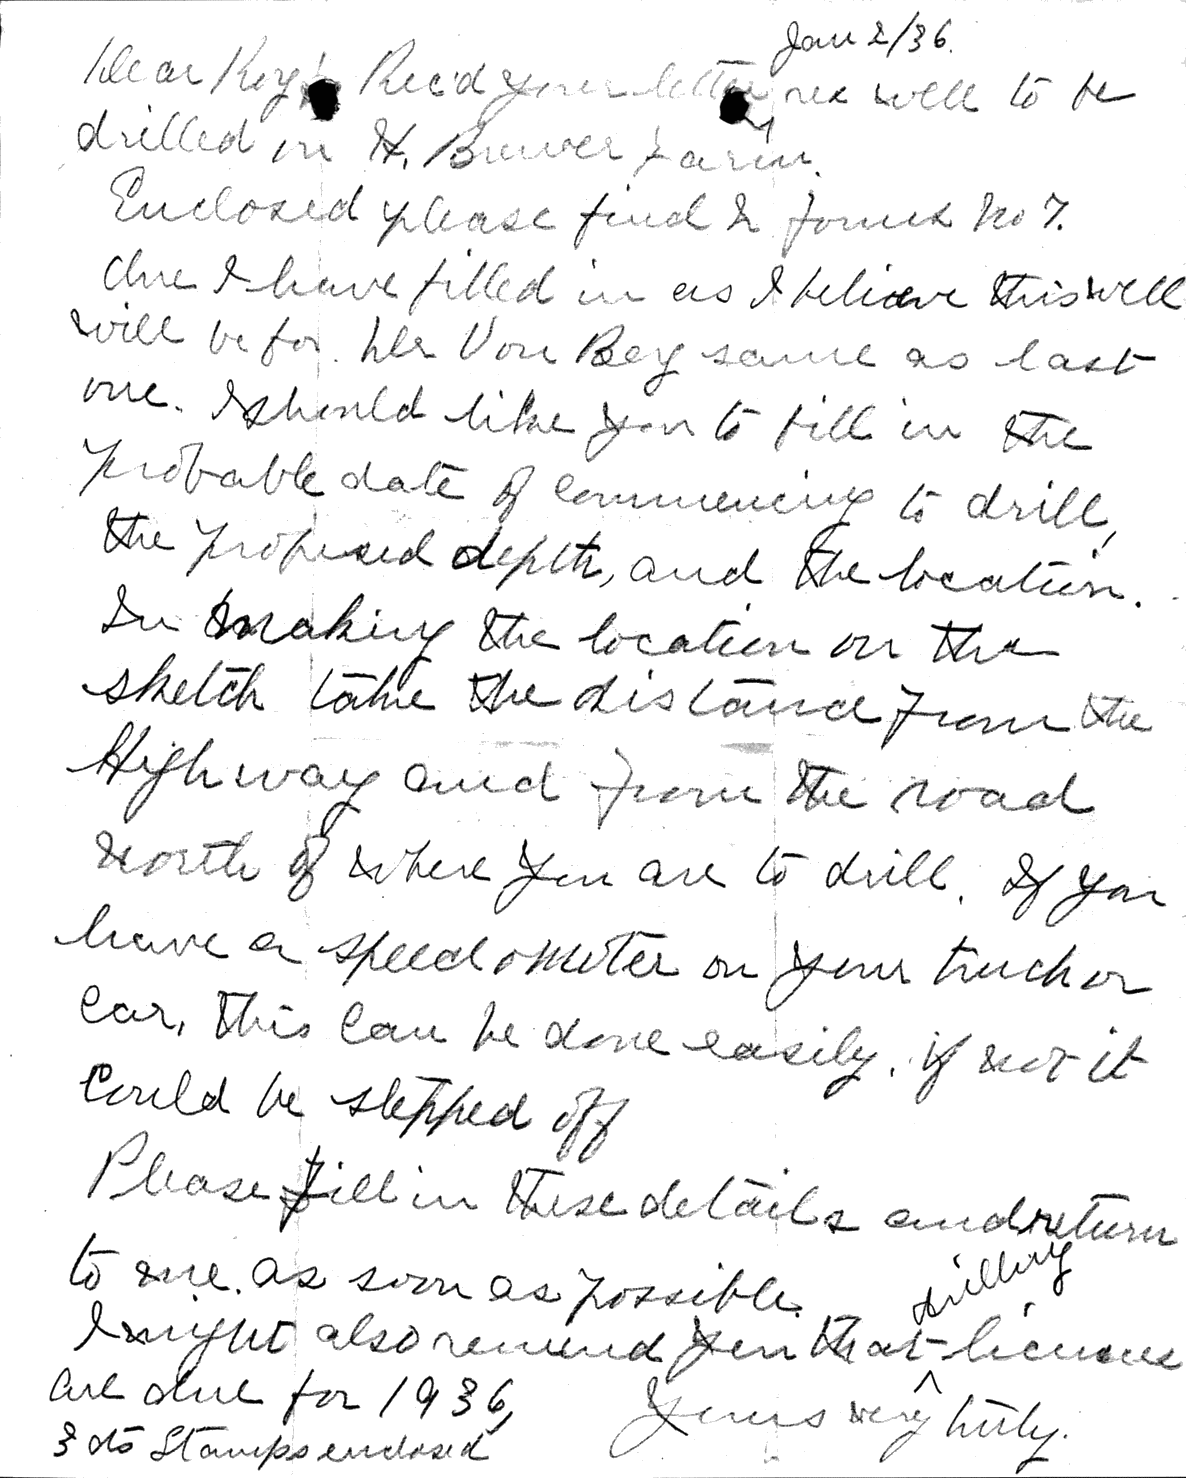 Jan 2/36.
Dear Roy: Rec'd your letter re well to be
drilled on H. Brewer farm.
Enclosed please find 2 forms No 7.
One I have filled in as I believe this well
will be for Mr Von Bey same as last
one. I should like you to fill in the
probable date of commencing to drill,
the proposed depth, and the location.
In making the location on the
sketch take the distance from the
Highway and from the road
north of where you are to drill. If you
have a speedometer on your truck or
car, this can be done easily, if not it
could be stepped off
Please fill in these details and return
to me as soon as possible.
I might also remind you that drilling licenses
are due for 1936,
Yours very truly.
3 cts Stamps enclosed